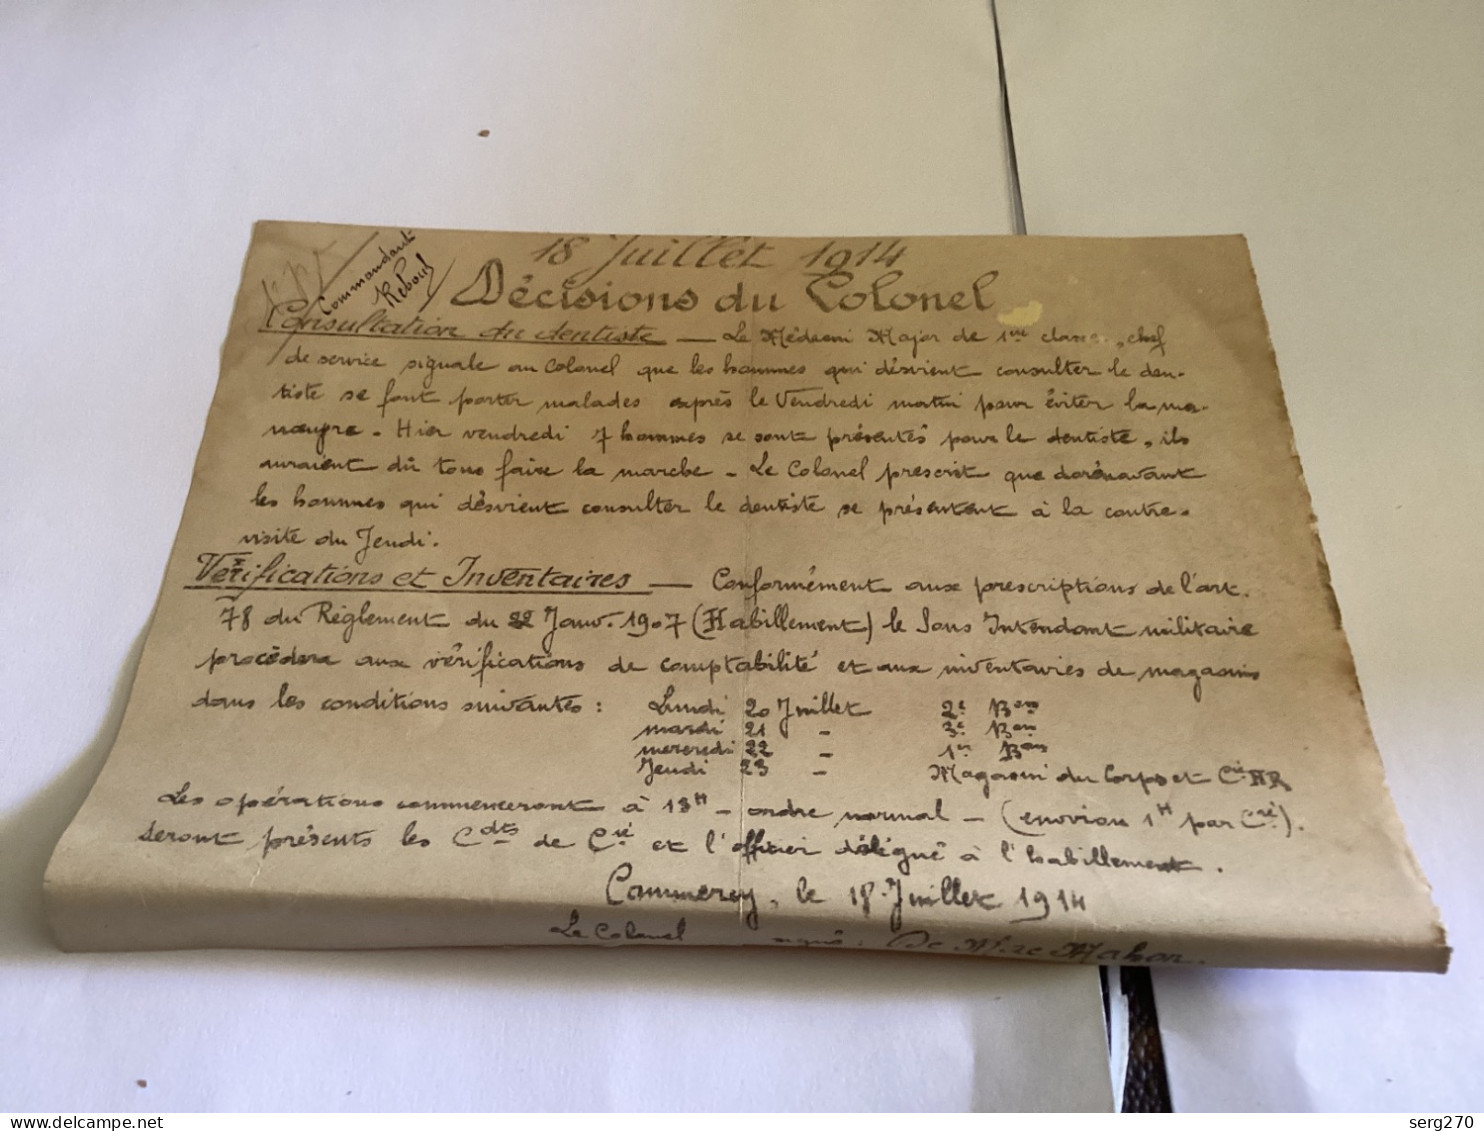 Commandant
Reboul
18 Juillet 1914
Décisions du Colonel
Consultation du dentiste — Le Médecin Major de 1re classe, chef
de service signale au Colonel que les hommes qui désirent consulter le den-
tiste se font porter malades exprès le Vendredi matin pour éviter la ma-
nœuvre. Hier vendredi 7 hommes se sont présentés pour le dentiste, ils
auraient dû tous faire la marche - Le Colonel prescrit que dorénavant
les hommes qui désirent consulter le dentiste se présentent à la contre-
visite du Jeudi.
Vérifications et Inventaires — Conformément aux prescriptions de l'art.
78 du Règlement du 22 Janv. 1907 (Habillement) le Sous Intendant militaire
procédera aux vérifications de comptabilité et aux inventaires de magasins
dans les conditions suivantes : Lundi 20 Juillet 2e Bon
mardi 21 - 3e Bon
mercredi 22 1er Bon
Jeudi 23 - Magasin du Corps et Cie HR
Les opérations commenceront à 13H - ordre normal - (environ 1H par Cie).
Seront présents les Cdts de Cie et l'officier délégué à l'habillement.
Commercy, le 18 Juillet 1914
Le Colonel signé : De Mac Mahon.
serg270